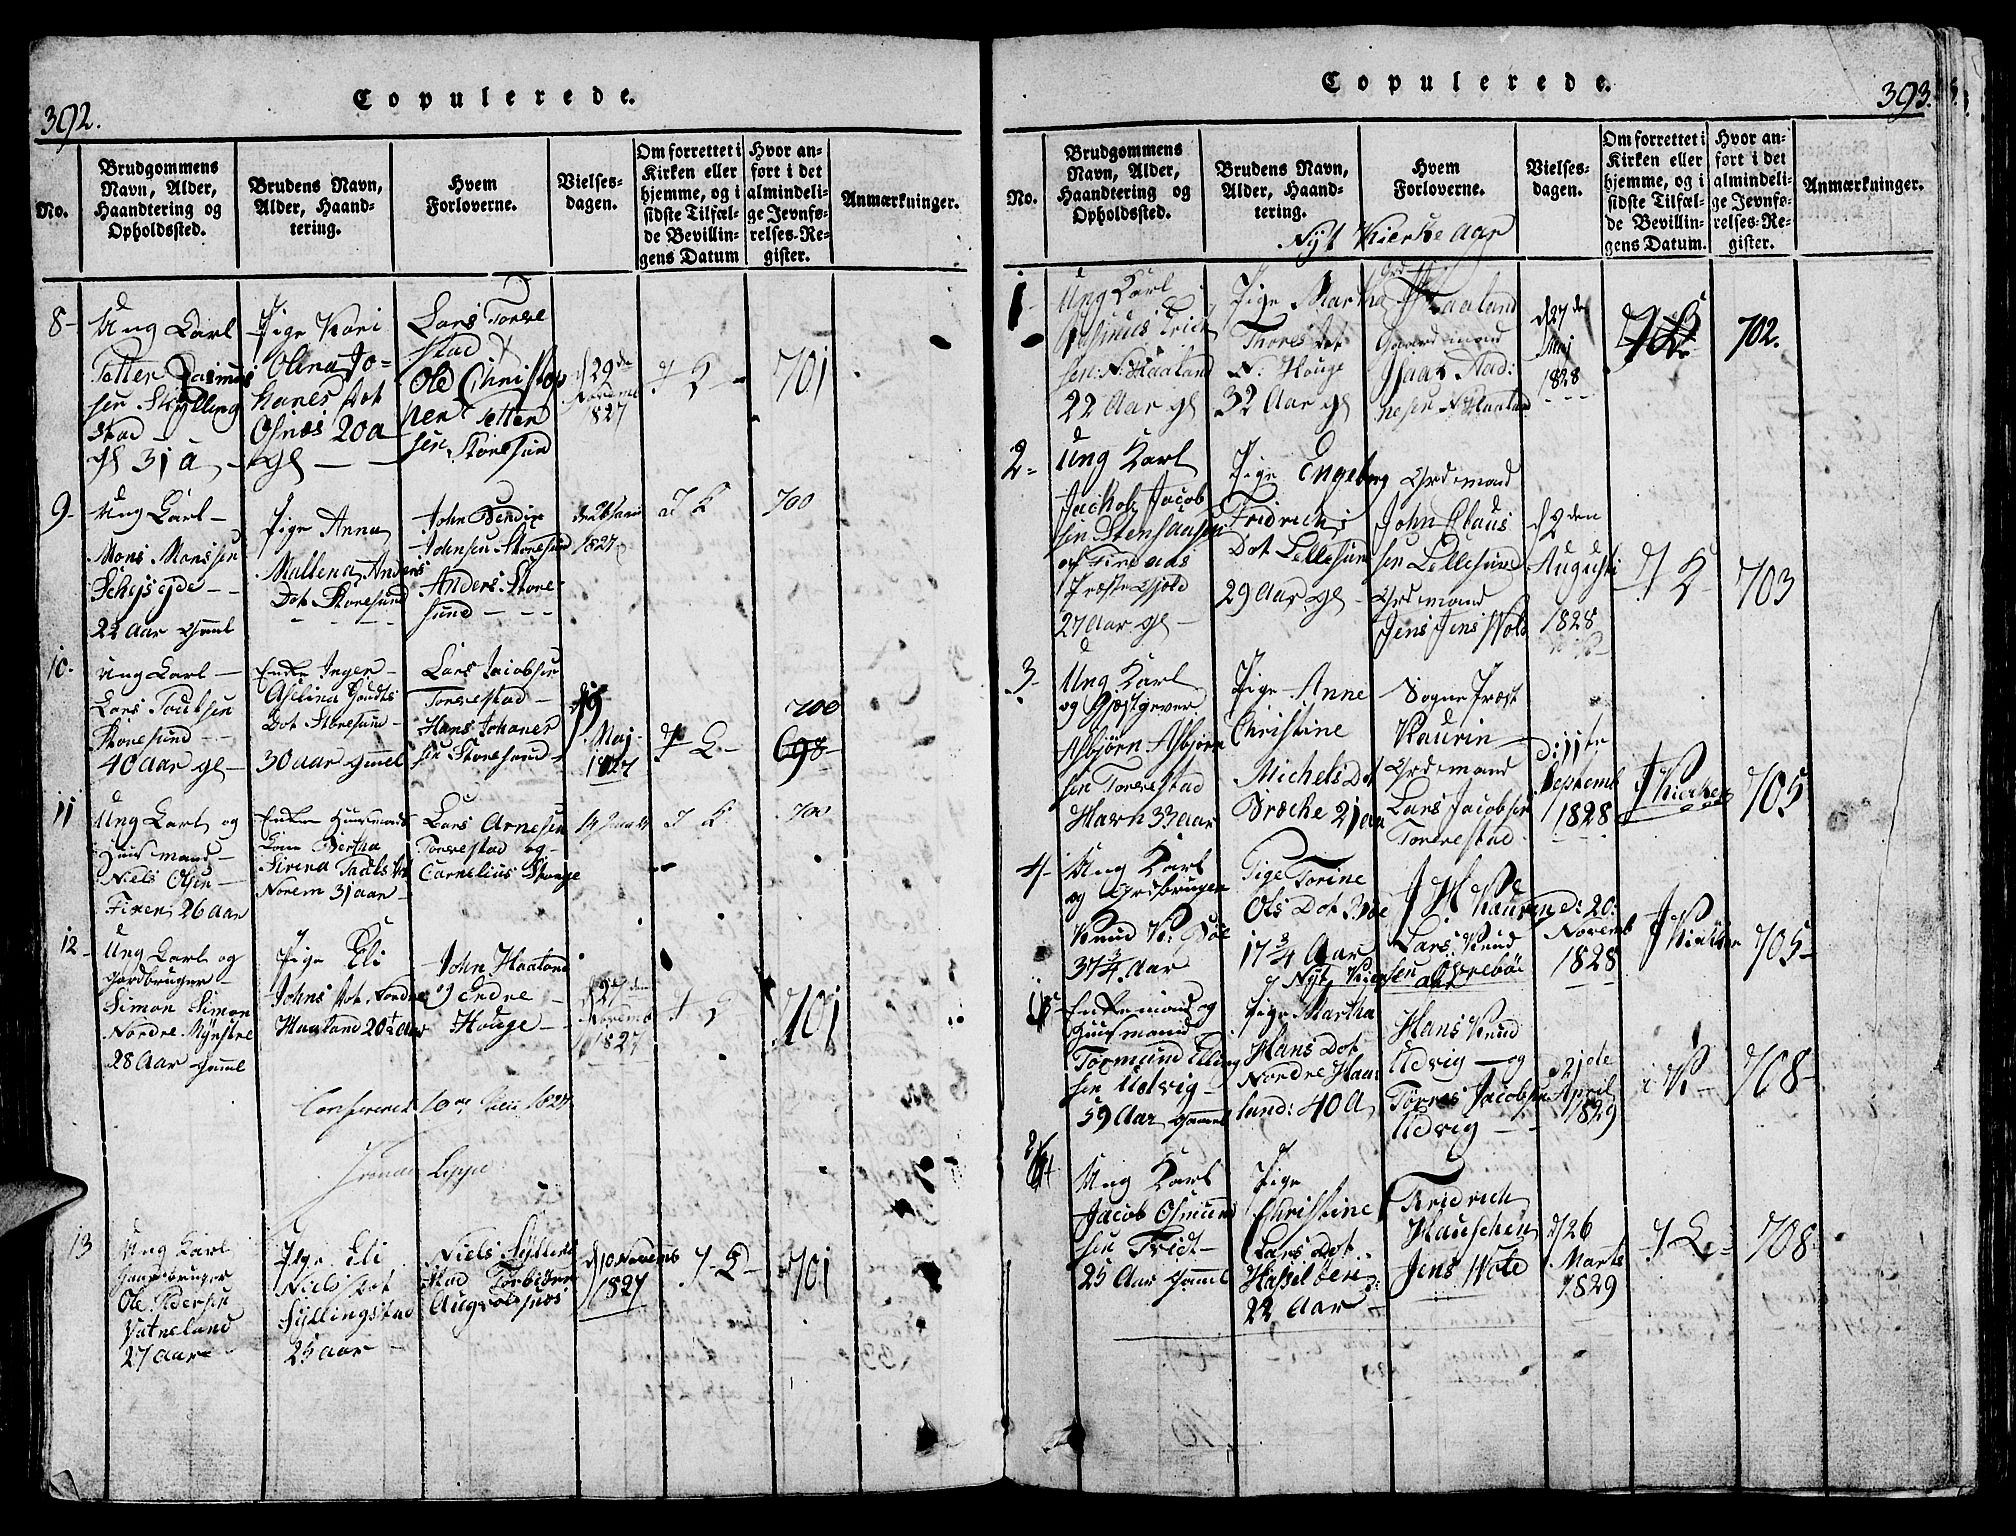 392.
Copulerede.
No.
Brudgommens
Navn, Alder,
Haandtering og
Opholdssted.
Brudens Navn,
Alder, Haand-
tering.
Hvem
Forloverne.
Vielses-
dagen.
Om forrettet i
Kirken eller
hjemme, og i
sidste Tilfæl-
de Bevillin-
gens Datum
Hvor an-
ført i det
almindeli-
ge Jevnfø-
relses-Re-
gister.
Anmærkninger.
8-
Ung Karl
Petter Rasmus
sen Skylling
stad - -
gl 31 a -
Pige Kari
Olena Jo-
hanes Dot
Osnes 20 a
gl -
Lars Torve
stad
Ole Christop
her Petter
sen Storesund
d 29de
Novemb
1827
I K
701
9-
Ung Karl -
Mons Monssen
22 Aar Gaml
Pige Anna
Mallena Anders
Dot Storesund
John Bendix
Johnsen Storesund
Anders Store-
sund - - -
1827
I K
700
10-
Ung Karl -
Lars Poulsen
Storesund - -
40 Aar gl -
Enke Inger -
Aselina
Dot Storesund -
30 aar gamel
Lars Jacobsen
Torvestad -
Hans Johanes
sen Storesund -
d 9
Maj
1827
I K -
700
698-
11
Ung Karl og
Huusmand -
Niels Olsen -
26 Aar
Enke Huusmands
Kone Bertha
Sirena Pauls Dot
Norem 31 aar -
Lars Arnesen
Torvestad og -
Cornelius Stange
I K
700
12-
Ung Karl og
Gordbruger -
Simon Simon
Nordre
28 Aar Gaml
Pige Eli
Johns Dot Nordre
Haaland 20½ Aar
John Haaland
Hendre -
Houge -
d 27de
Novemb
1827
I K
701
Confereret 10de
13
Ung Karl
Gaardbruger
Ole Pedersen
Vatneland
27 Aar
Pige Eli
Niels Dot
Syllingstad
25 aar -
Niels Sylling
stad Torbiørn
Augvoldsnes
d 10 Novemb
1827
I K -
701
393.
Copulerede.
No.
Brudgommens
Navn, Alder,
Haandtering og
Opholdssted.
Brudens Navn,
Alder, Haand-
tering.
Hvem
Forloverne.
Vielses-
dagen.
Om forrettet i
Kirken eller
hjemme, og i
sidste Tilfæl-
de Bevillin-
gens Datum.
Hvor an-
ført i det
almindeli-
ge Jevnfø-
relses-Re-
gister.
Anmærkninger.
Nyt Kierke Aar
1-
Ung Karl
Asmus Erich
sen N: Haaland
22 Aar gl
Pige Martha
Thores Dot
N: Houge
32 Aar gl
Haaland
Gaardmand
Isaac
nesen N Haaland
d 27de
Maj
1828
I K
702.
2-
Ung Karl
Jachob Jacob
sen Stensaasen
af Findaas
Præste Gjeld
27 Aar gl -
Pige Engeborg
Fridrichs
Dot Lillesund
29 Aar gl -
Grdemand
John Claus
sen Lillesund
Grdemand
Jens Jens Wold
d 2den
Augusti
1828
I K
703
3-
Ung Karl
og Gjestgever
Asbjørn Asbjørn
sen Torvestad
Havn 33 aar
Pige Anne
Christine
Michels Dot
Broche 21 aa
Sogne Præst
Kaurin -
Grdemand
Lars Jacobsen
Torvestad
d: 11te
Septemb
1828
I Kierken
705
4-
Ung Karl
og Grdbruger
Knud K: Bøe
37¾ Aar
Pige Torine
Ols Dot Bøe
17¾ Aar
J H Kaurin
Lars Knud
sen Øvrebøe
d: 20:
Novemb
1828
I Kirken
705-
Nyt Kier Aar
1
Enkemand og
Huusmand -
Tormund Elling
sen Udvig -
59 Aar Gammel
Pige Martha
Hans Dot
Nordre Haa
land: 40 A
Hans Knud
Udvig - og
Torres Jacobsen
Udvig - -
21de
April
1829
i K -
708-
2
Ung Karl
Jacob Osmund
sen Tvidt -
25 Aar Gaml
Pige
Christine
Lars Dot
Hasselberg
22 Aar -
Fridrich
Hauschen
Jens Wete
d 26
Marts
1829
I K -
708-